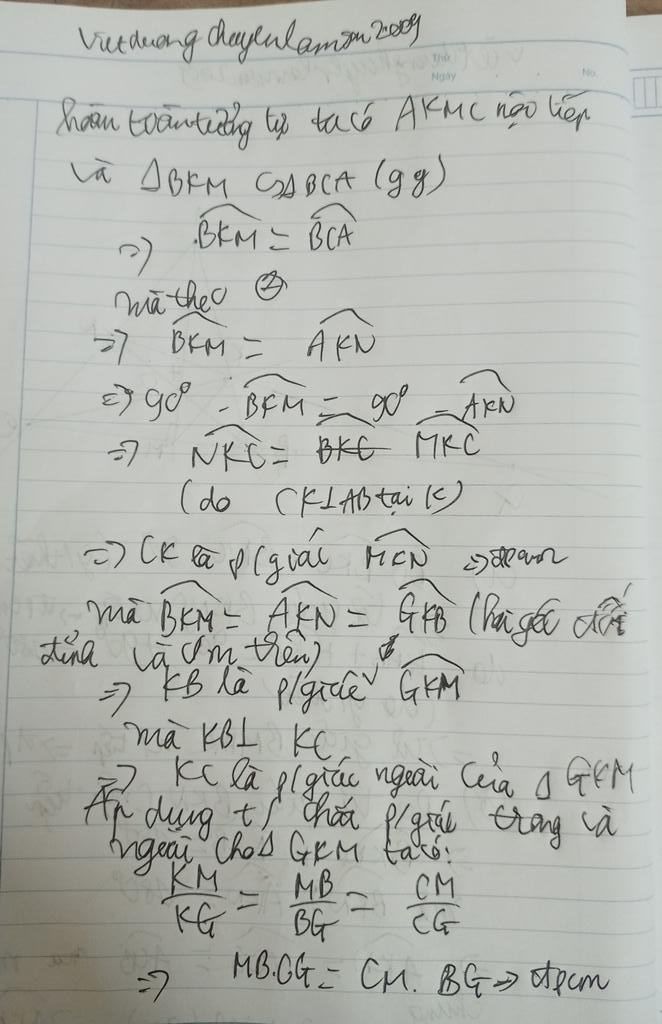 Vietduongchuyenlamson2009
Thứ
Ngày
No.
hoàn toàn tưởng tự ta có AKMC nội tiếp
và ΔBKM ∽ ΔBCA (gg)
=> BKM = BCA
mà theo ②
=> BKM = AKN
=> 90° - BKM = 90° - AKN
=> NKC = BKC MKC
(do CK⊥AB tại K)
=> CK là p/giác MKN => đpcm
mà BKM = AKN = GKB (hai góc đối
đỉnh và cm trên)
=> KB là p/giác GKM
mà KB⊥ KC
=> KC là p/giác ngoài của Δ GKM
Áp dụng t/ chất p/giác trong và
ngoài cho Δ GKM ta có:
KM/KG = MB/BG = CM/CG
=> MB.CG = CM. BG => đpcm